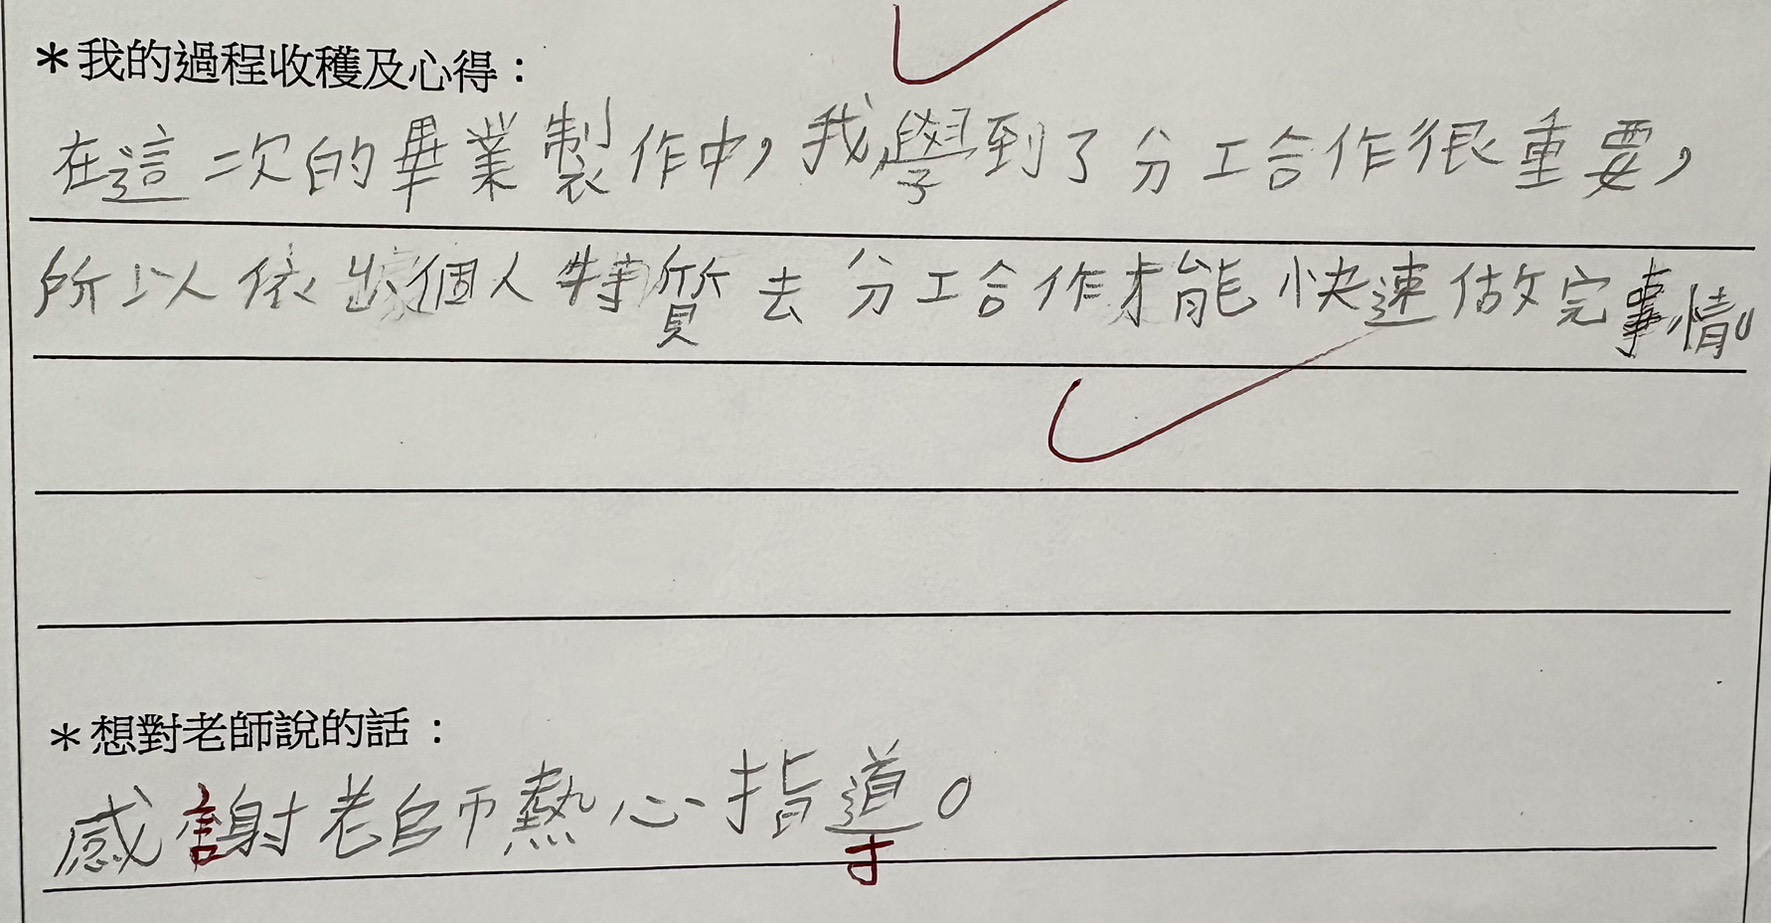 ＊我的過程收穫及心得：
在這次的畢業製作中，我學到了分工合作很重要，
所以依出個人特質去分工合作才能快速做完事情。
＊想對老師說的話：
感謝老師熱心指導。